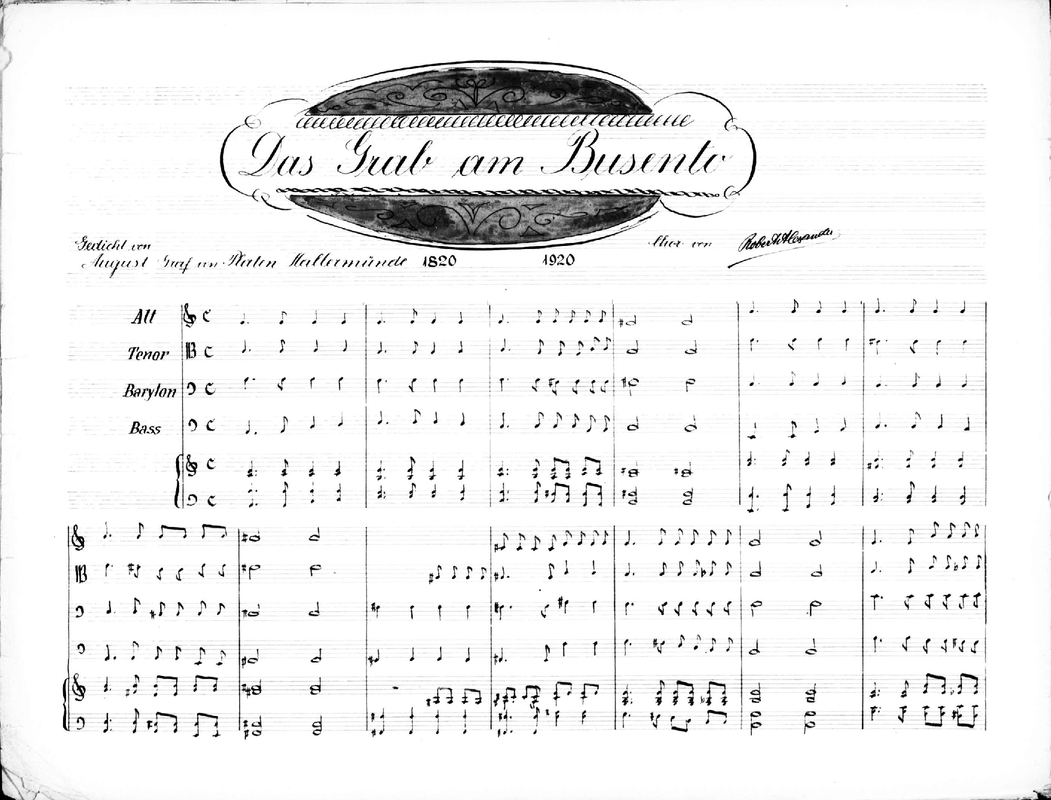 Das Grab am Busento
Gedicht von
August Graf von Platen Hallermünde 1820 1920
von Robert Alexander
Alt
Tenor
Baryton
Bass